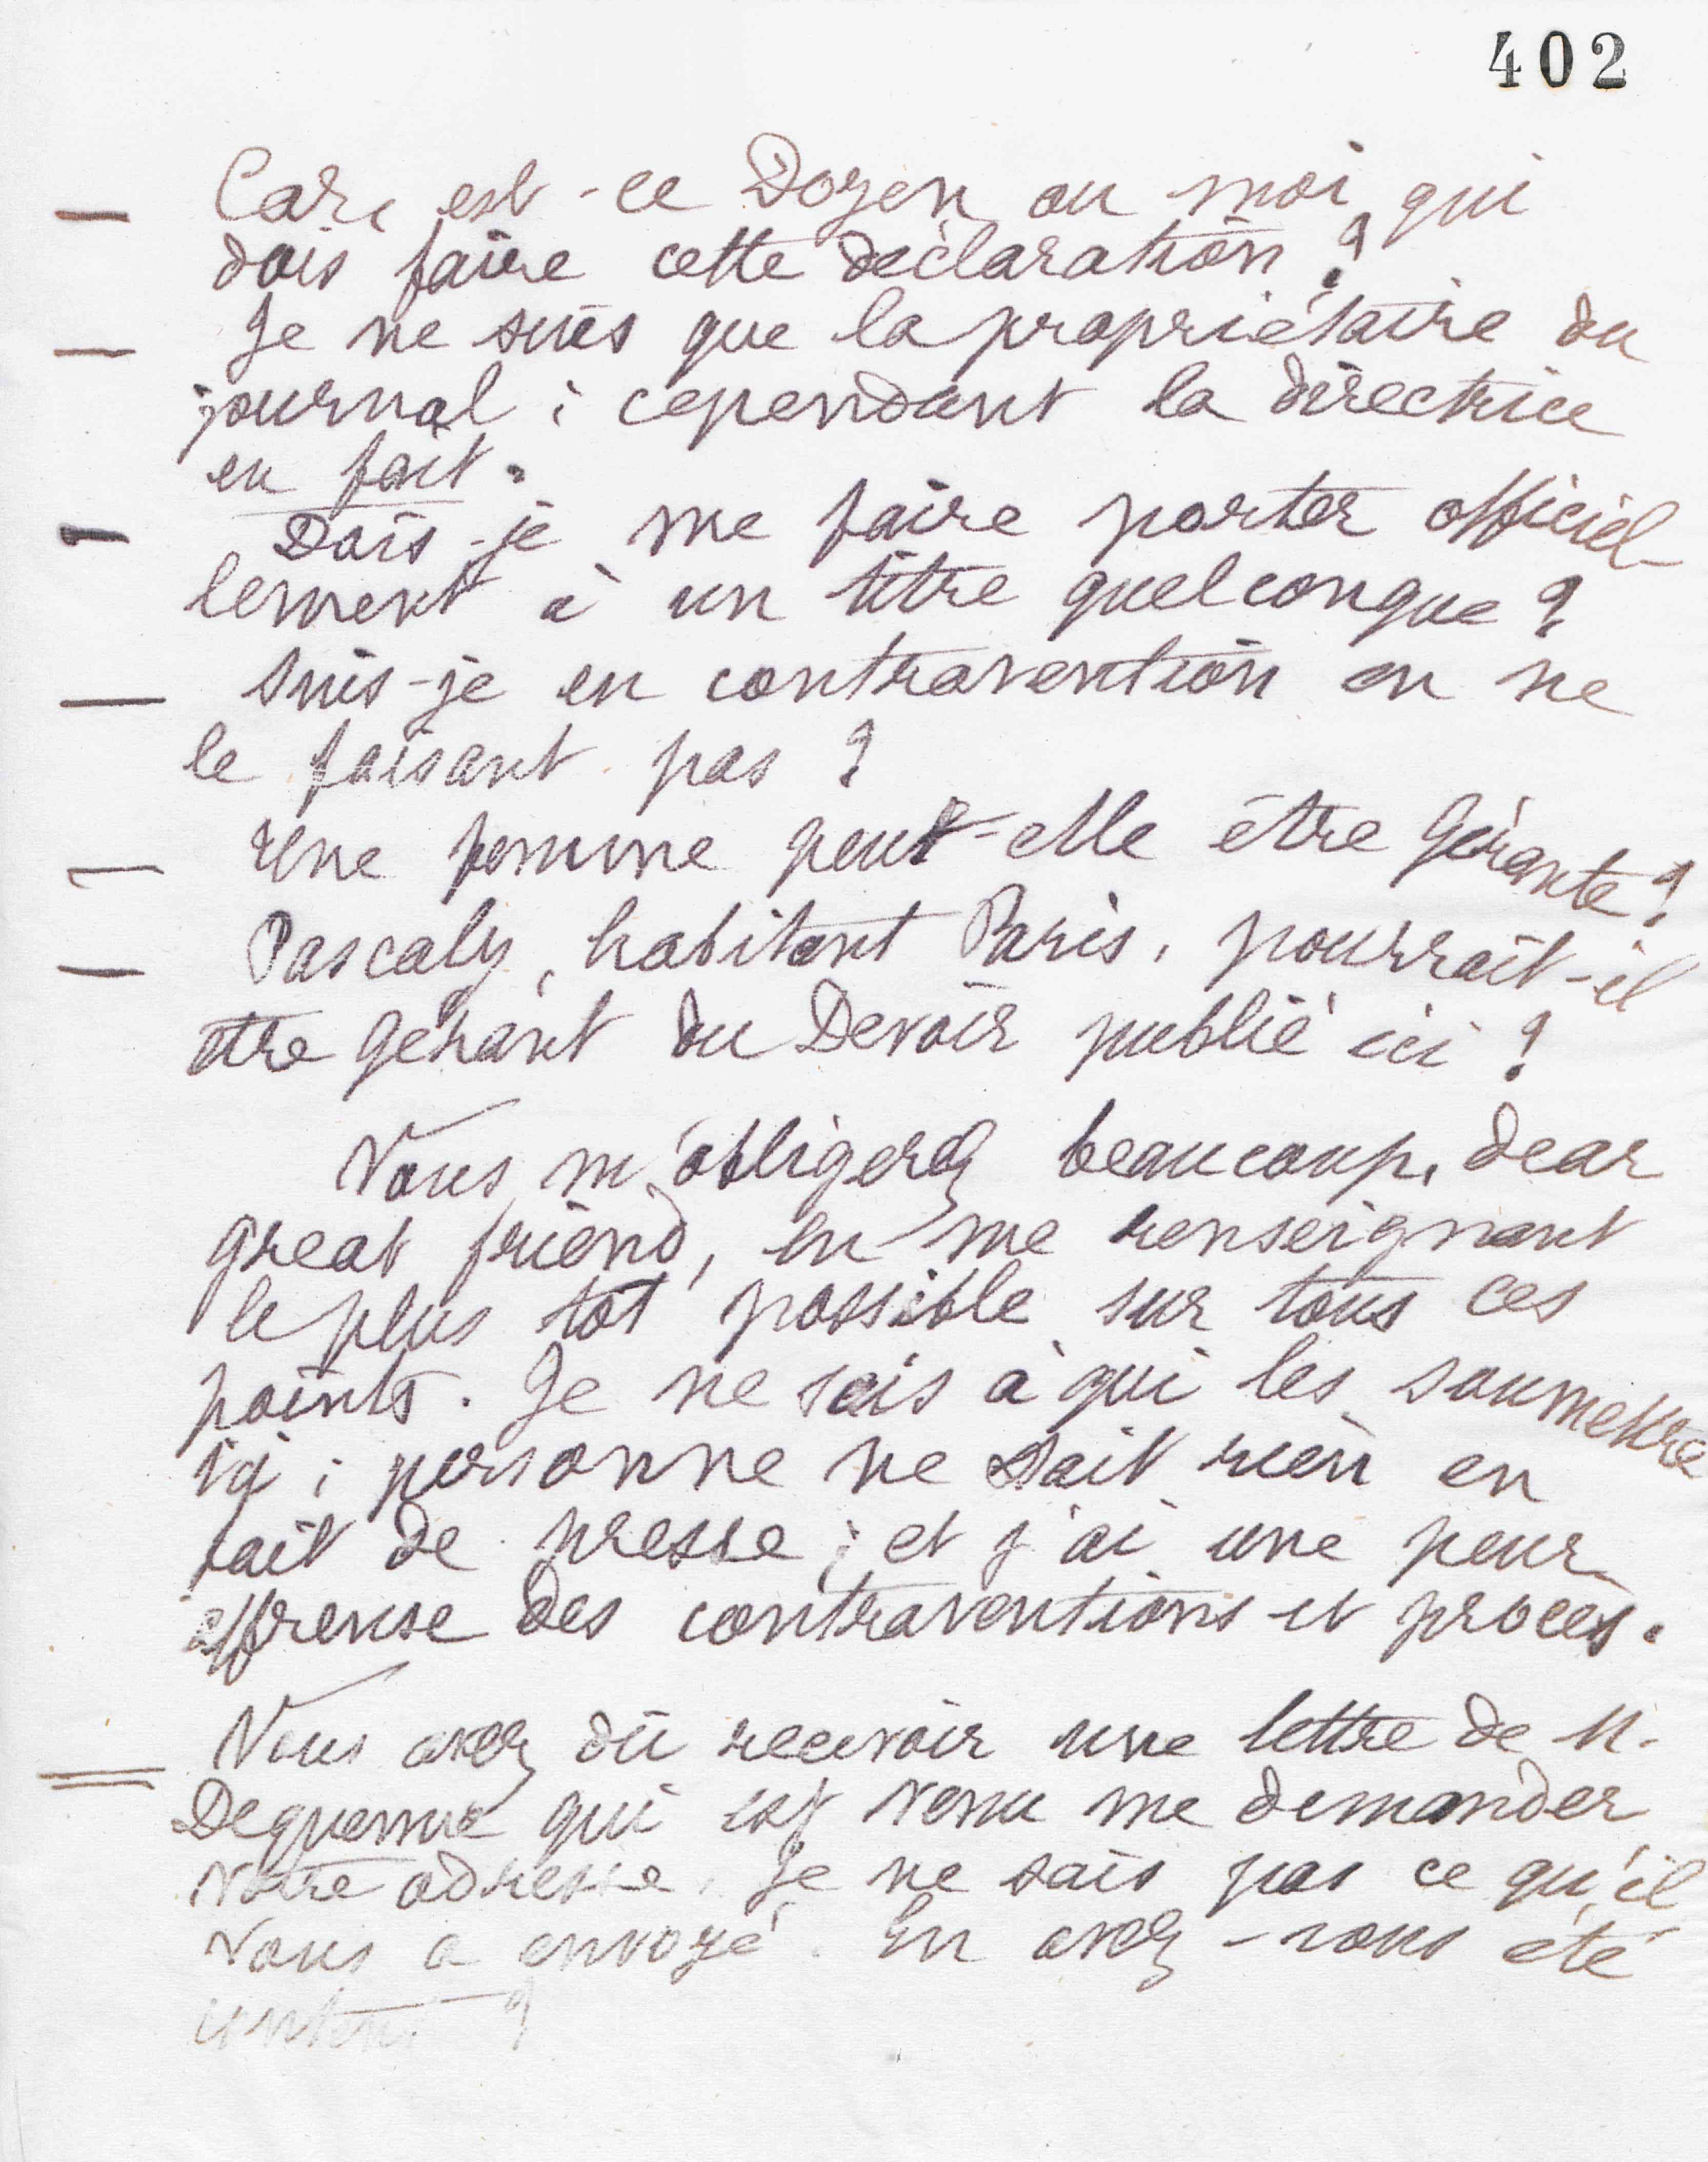 402
— Car, est-ce Doyen ou moi qui
dois faire cette déclaration ?
— Je ne suis que la propriétaire du
journal ; cependant la directrice
en fait.
— Dois-je me faire porter officiel-
lement à un titre quelconque ?
— Suis-je en contravention en ne
le faisant pas ?
— Une femme peut-elle être Gérante ?
— Pascaly, habitant Paris, pourrait-il
être gérant du Devoir publié ici ?
Vous m'obligerez beaucoup, dear
great friend, en me renseignant
le plus tôt possible sur tous ces
points. Je ne sais à qui les soumettre
ici ; personne ne sait rien en
fait de presse ; et j'ai une peur
affreuse des contraventions et procès.
Vous avez dû recevoir une lettre de M.
Dequenne qui est venu me demander
votre adresse. Je ne sais pas ce qu'il
vous a envoyé. En avez-vous été
content ?